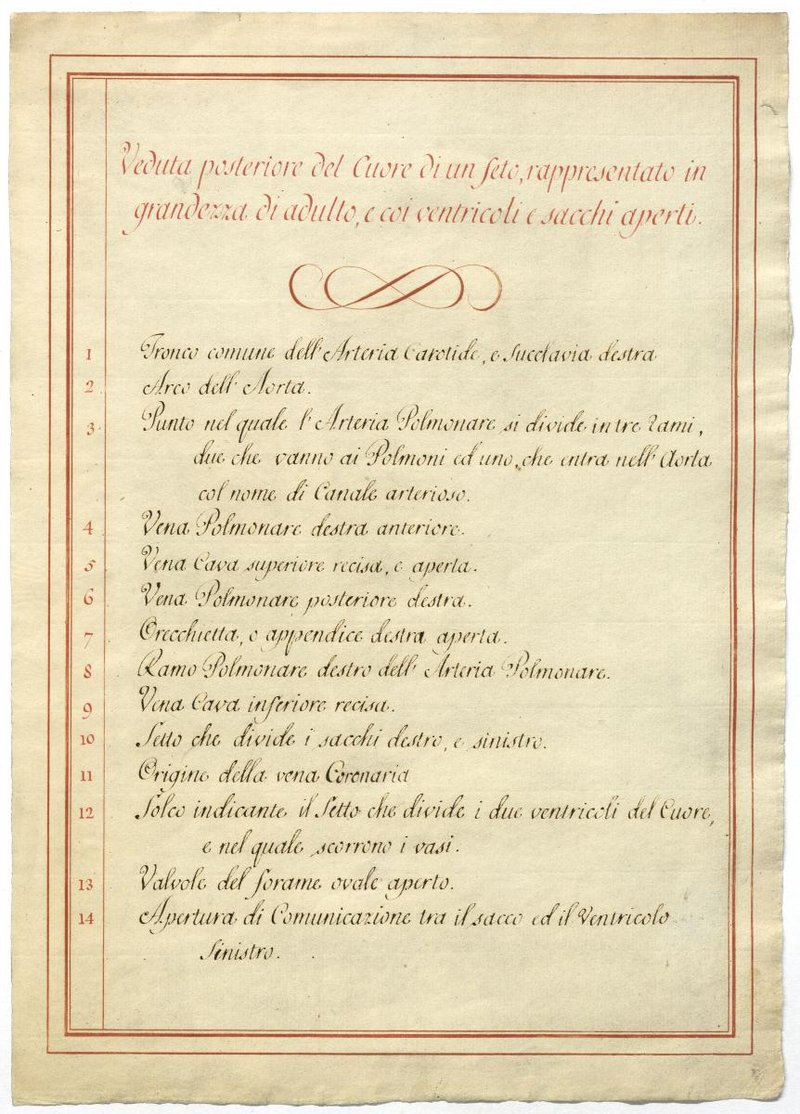 Veduta posteriore del Cuore di un feto, rappresentato in
grandezza di adulto, e coi ventricoli e sacchi aperti.
1 Tronco comune dell' Arteria Carotide, e Succlavia destra
2 Arco dell' Aorta.
3 Punto nel quale l' Arteria Polmonare si divide in tre rami,
due che vanno ai Polmoni ed uno, che entra nell' Aorta
col nome di Canale arterioso.
4 Vena Polmonare destra anteriore.
5 Vena Cava superiore recisa, e aperta.
6 Vena Polmonare posteriore destra.
7 Orecchietta, o appendice destra aperta.
8 Ramo Polmonare destro dell' Arteria Polmonare.
9 Vena Cava inferiore recisa.
10 Setto che divide i sacchi destro, e sinistro.
11 Origine della vena Coronaria
12 Solco indicante il Setto che divide i due ventricoli del Cuore,
e nel quale scorrono i vasi.
13 Valvole del forame ovale aperto.
14 Apertura di Comunicazione tra il sacco ed il Ventricolo
Sinistro.